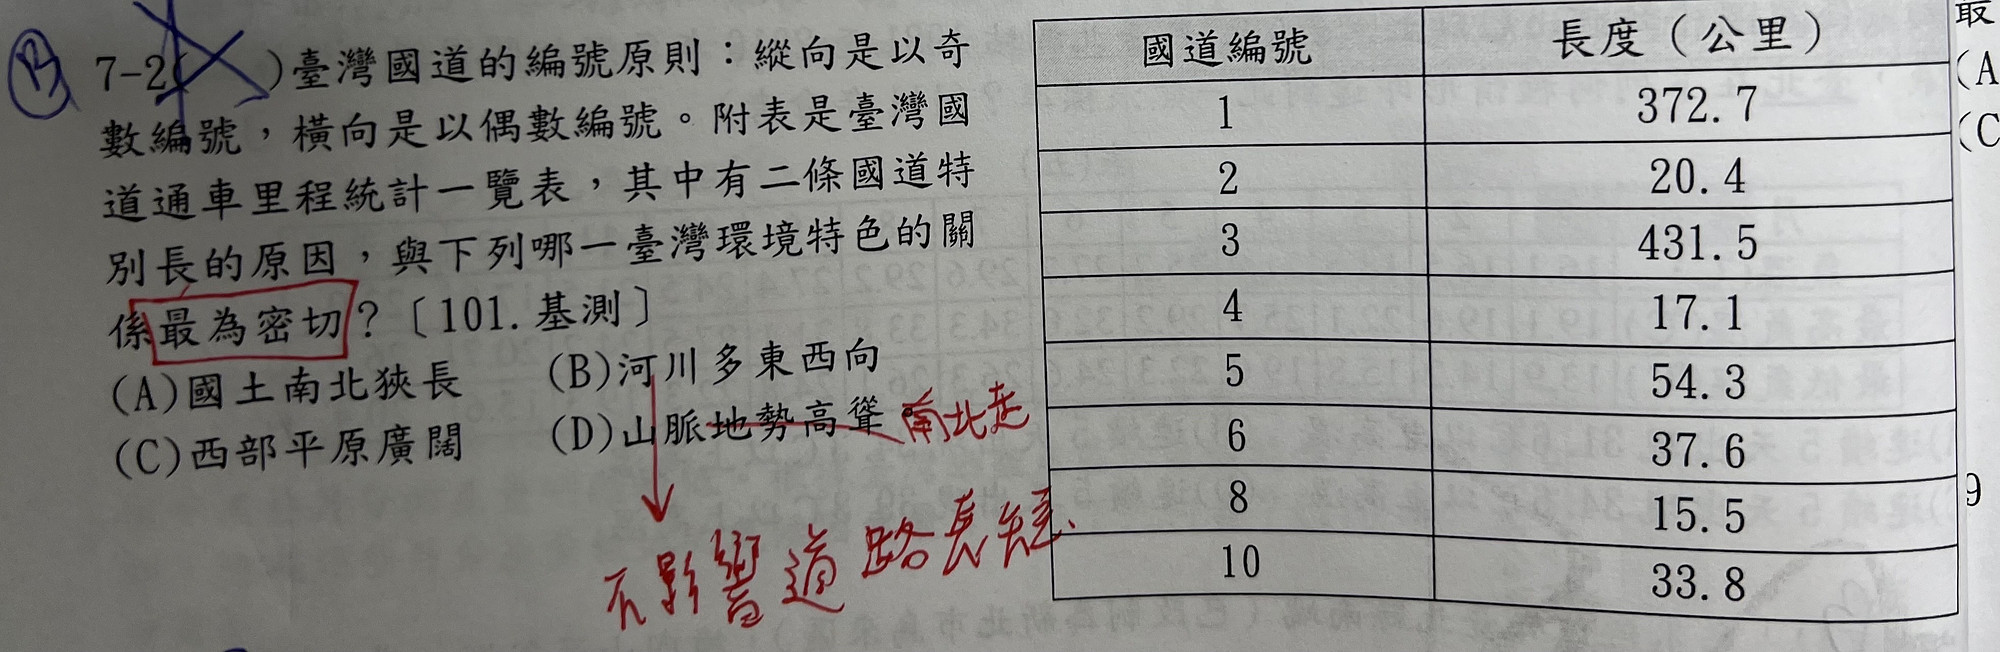 7-2( )臺灣國道的編號原則：縱向是以奇
數編號，橫向是以偶數編號。附表是臺灣國
道通車里程統計一覽表，其中有二條國道特
別長的原因，與下列哪一臺灣環境特色的關
係最為密切？〔101.基測〕
(A)國土南北狹長 (B)河川多東西向
(C)西部平原廣闊 (D)山脈地勢高聳 南北走
不影響道路長短、
國道編號 長度（公里）
1 372.7
2 20.4
3 431.5
4 17.1
5 54.3
6 37.6
8 15.5
10 33.8
最
(A
(C
9